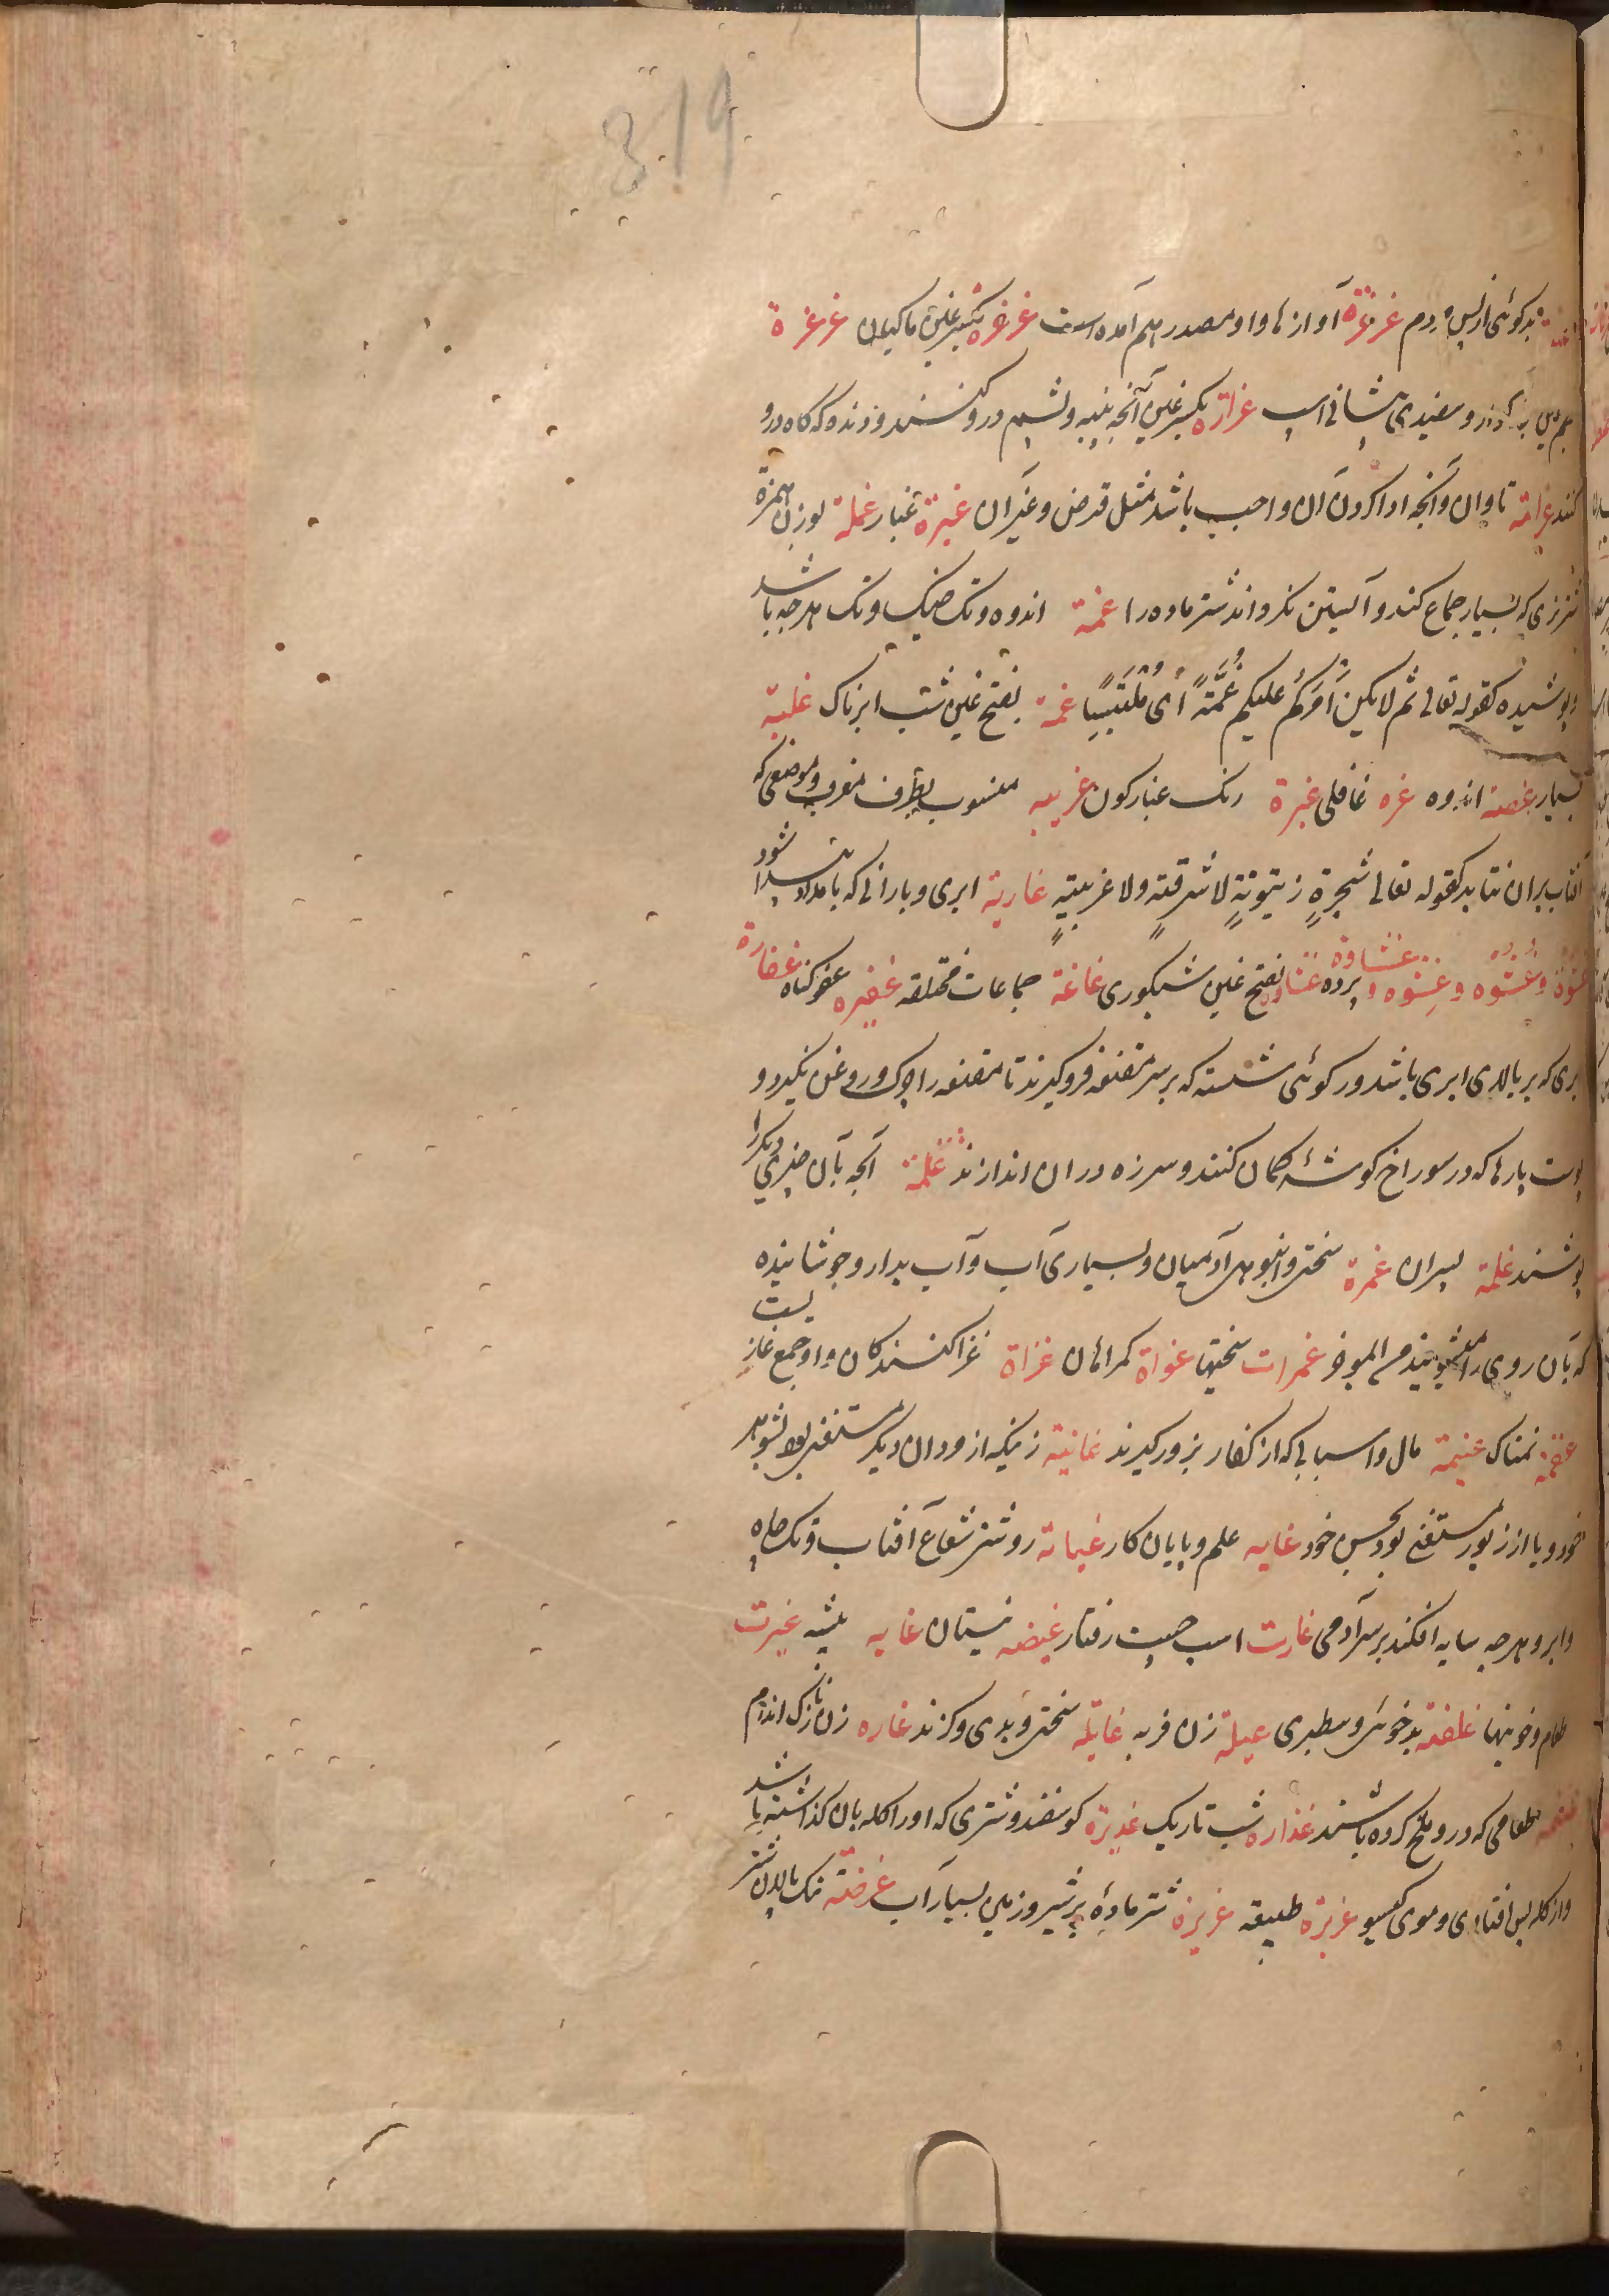 319
بدکوئی از پس مردم غرغرة آوازها واو مصدر هم آمده است غرغره بکسر غین ماکیان غرغرة
و سفیدی پیشانی اسپ غراره بکسر غین آنچه پنبه و پشم درو کنند و که کاه درو
کنند غرامة تاوان و آنچه ادا کردن آن واجب باشد مثل قرض و غیر آن غبرة غبار غملة بوزن همزة
شترنری که بسیار جماع کند و آبستن نکرداند شتر ماده را غمة اندوه و تنک و هرچه باشد
پوشیده کقوله تعالی ثم لا یکن امرکم علیکم غُمَّةً أی مُلْتَبِسًا غمة بفتح غین شب ابرناک غلبة
بسیار غصة اندوه غره غافلی غبرة رنک غبارکون غربیه منسوب بطرف مغرب و موضعی که
آفتاب بران نتابد کقوله تعالی شجرةٍ زیتونةٍ لا شرقیةٍ ولا غربیةٍ غاریة ابری و بارانی که بامداد پیدا شود
غشوة و غُشوه و غِشوه و غشاوة پرده غشاوه بفتح غین شبکوری غاغة جماعات مختلفه غفیره عفو کناه غفارة
ابری که بر بالای ابری باشد و رکوئی شسته که بر سر مقنعه فروکیرند تا مقنعه را چرک و روغن نکیرد و
پوست پارها که در سوراخ کوشهٔ کمان کنند و سر زه در ان اندازند غلمة آنچه بآن چیزی دیکر را
پوشند غلمة پسران غمرة سختی و انبوهی آدمیان و بسیاری آب و آب بدارو جوشانیده
که بآن روی را میشویند من المؤخر غمرات سختیها غواة کمراهان غزاة غزا کنندکان و او جمع غازیست
نمناک غنیمة مال و اسبابی که از کفار بزور کیرند غانیة زنیکه از مردان دیکر مستغنی بود بشوهر
خود و یا از زیور مستغنی بود بحسن خود غایه علم و پایان کار غیایة روشنی شعاع آفتاب و تک چاه
و ابر و هرچه سایه افکند بر سر آدمی غارت اسب چست رفتار غیضه نیستان غابه بیشه غیرت
طعام و خونبها غلظة بدخوئی و سطبری غیلة زن فربه غایلة سختی و بدی و کزند غاره زن نازک اندام
طعامی که درو ملخ کرده باشند غداره شب تاریک غدیرة کوسفند و شتری که او را کله بان کذاشته باشد
و از کله پس افتادی و موی کیسو غریزة طبیعه غزیرة شتر مادهٔ پر شیر و زمین بسیار آب غرضة تنک پالان شتر